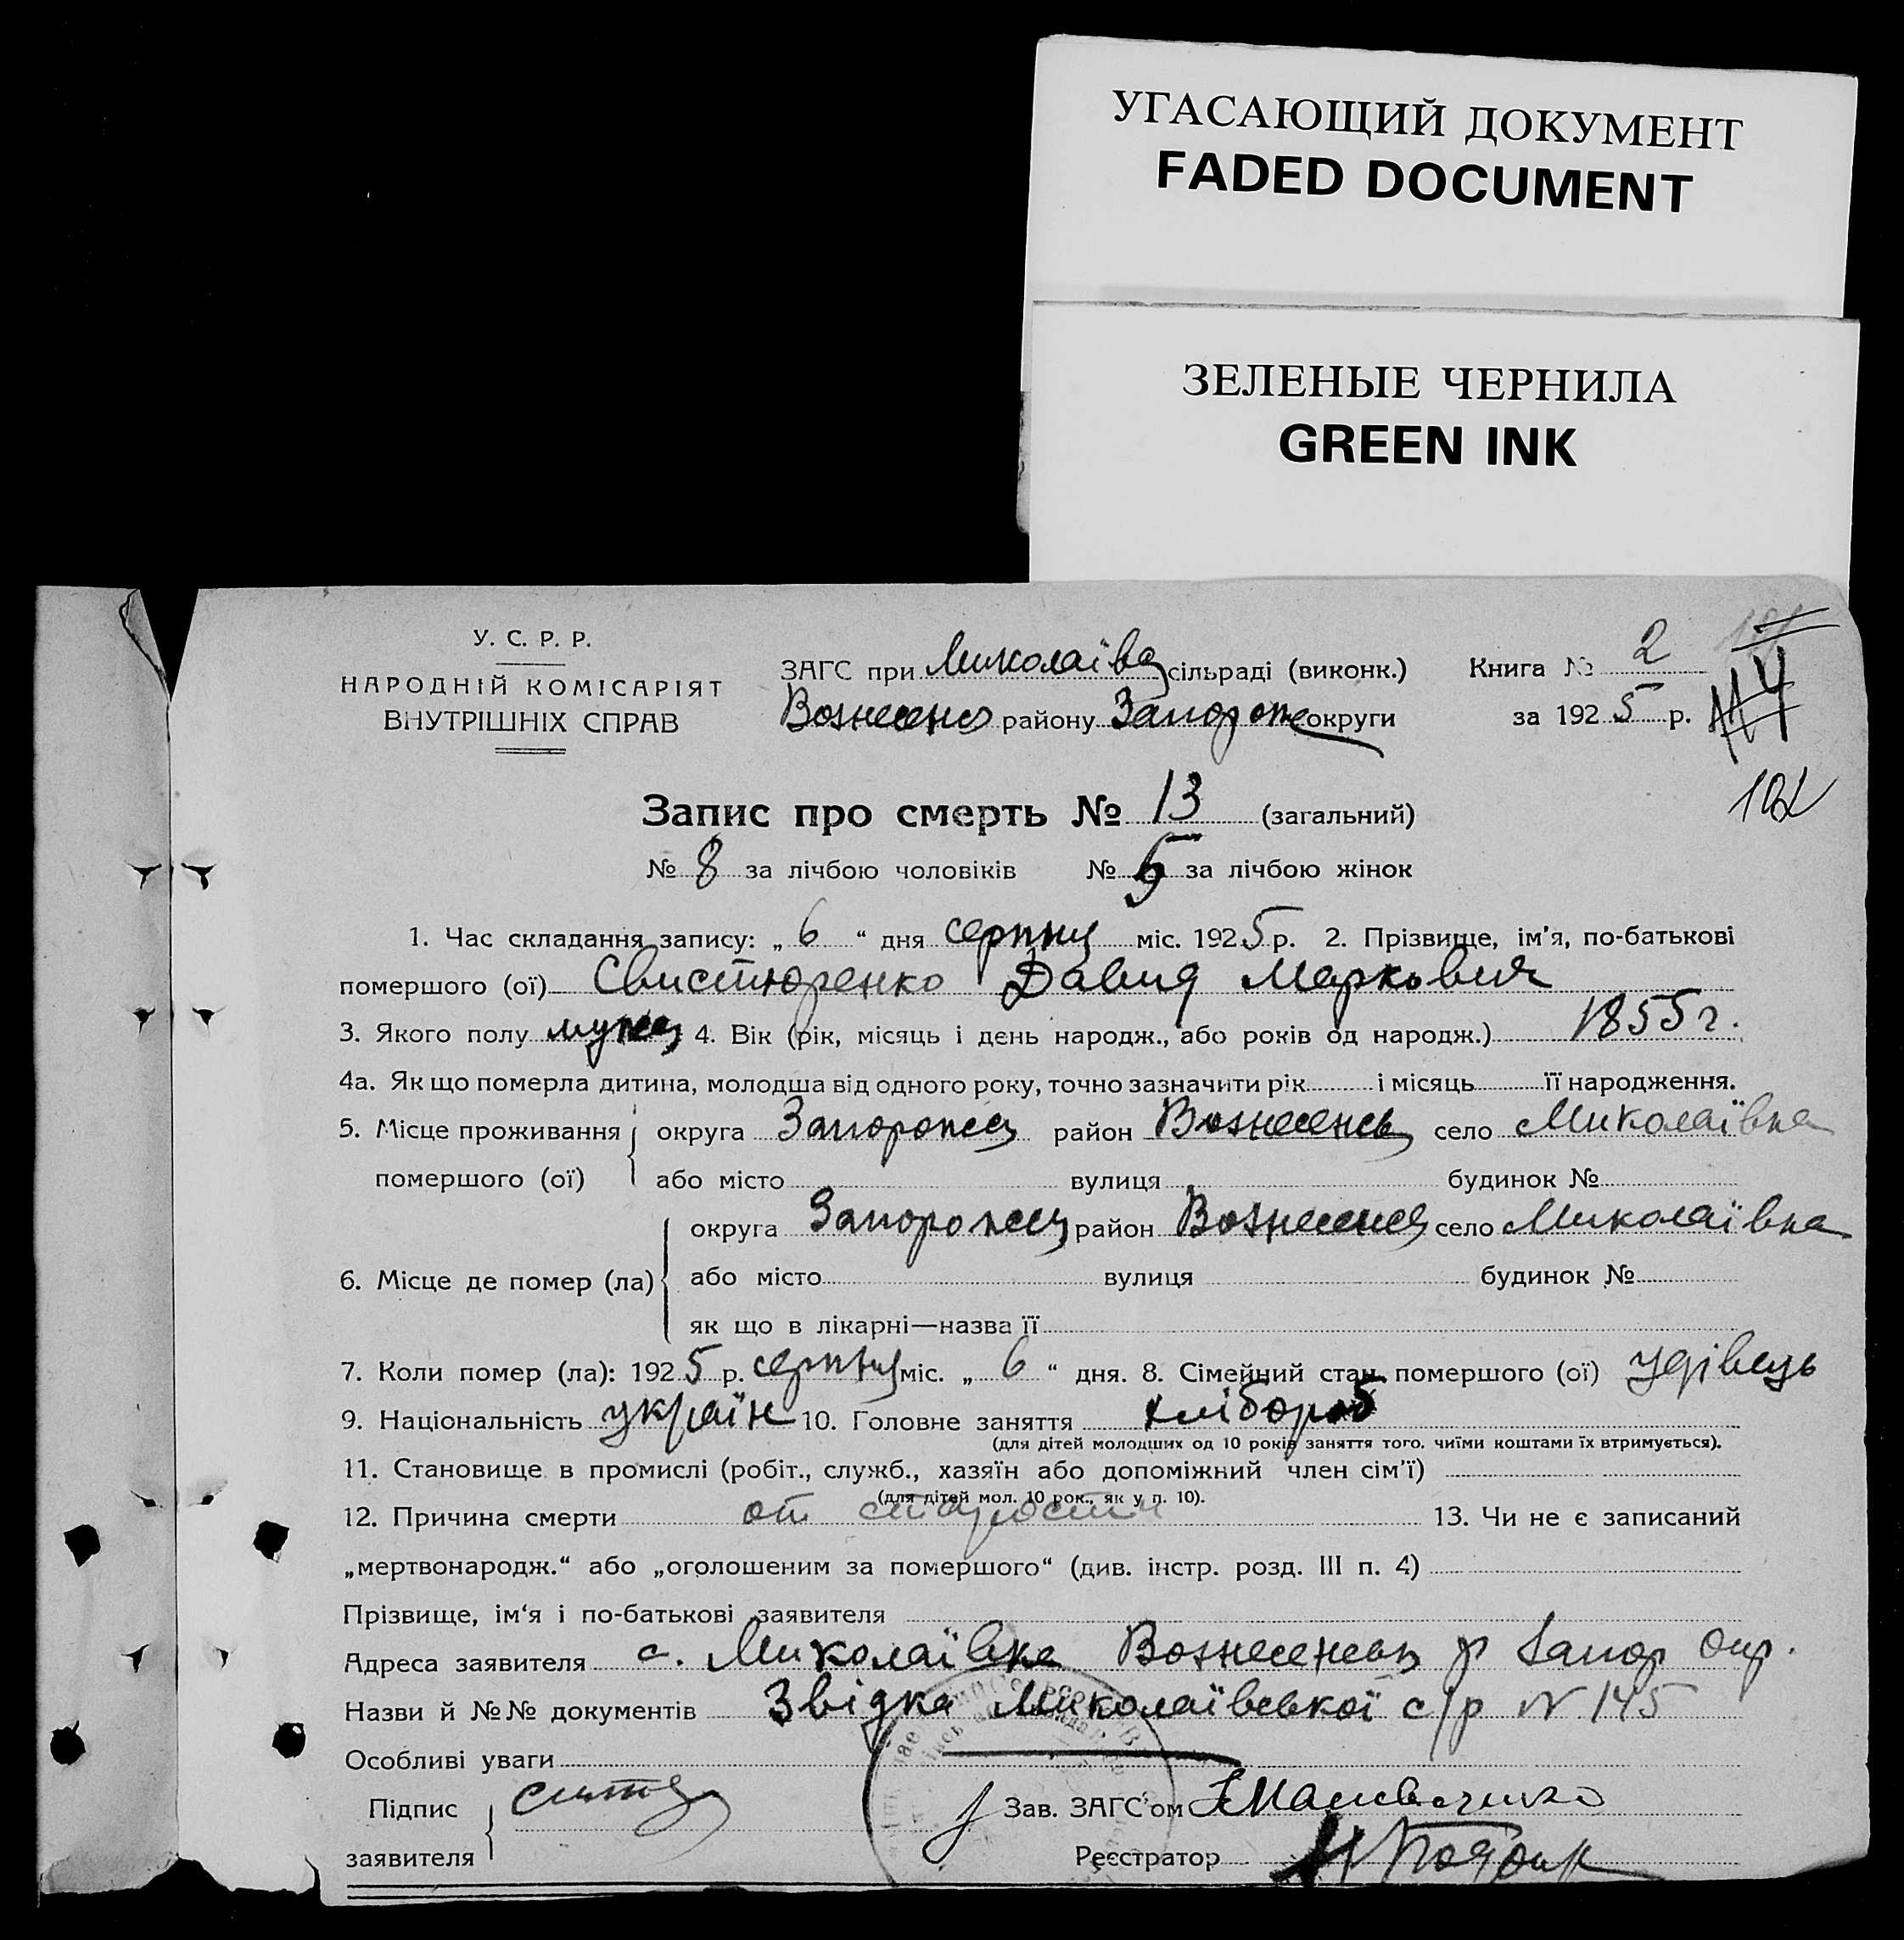 УГАСАЮЩИЙ ДОКУМЕНТ
FADED DOCUMENT
ЗЕЛЕНЫЕ ЧЕРНИЛА
GREEN INK
У. С. Р. Р.
НАРОДНІЙ КОМІСАРІЯТ
ВНУТРІШНІХ СПРАВ
ЗАГС при Миколаївс сільраді (виконк.)
Вознесенс району Запорож округи
Книга № 2
за 1925 р.
102
Запис про смерть № 13 (загальний)
№ 8 за лічбою чоловіків № 5 за лічбою жінок
1. Час складання запису: „ 6 “ дня серпня міс. 1925 р. 2. Прізвище, ім’я, по-батькові
помершого (ої) Свистюренко Давид Маркович
3. Якого полу муж 4. Вік (рік, місяць і день народж., або років од народж.) 1855 г.
4а. Як що померла дитина, молодша від одного року, точно зазначити рік і місяць її народження.
5. Місце проживання помершого (ої) округа Запорож район Вознесенс село Миколаївка
або місто вулиця будинок №
6. Місце де помер (ла) округа Запорож район Вознесенс село Миколаївка
або місто вулиця будинок №
як що в лікарні—назва її
7. Коли помер (ла): 1925 р. серпня міс. „ 6 “ дня. 8. Сімейний стан помершого (ої) удівець
9. Національність україн 10. Головне заняття хлібороб
(для дітей молодших од 10 років заняття того, чиїми коштами їх втримується).
11. Становище в промислі (робіт., служб., хазяїн або допоміжний член сім’ї)
(для дітей мол. 10 рок., як у п. 10).
12. Причина смерти от старости 13. Чи не є записаний
„мертвонародж.“ або „оголошеним за помершого“ (див. інстр. розд. III п. 4)
Прізвище, ім‘я і по-батькові заявителя
Адреса заявителя с. Миколаївка Вознесенськ р Запор окр.
Назви й №№ документів Звідка Миколаївської с/р № 145
Особливі уваги
Підпис
заявителя
Зав. ЗАГС’ом
Реєстратор